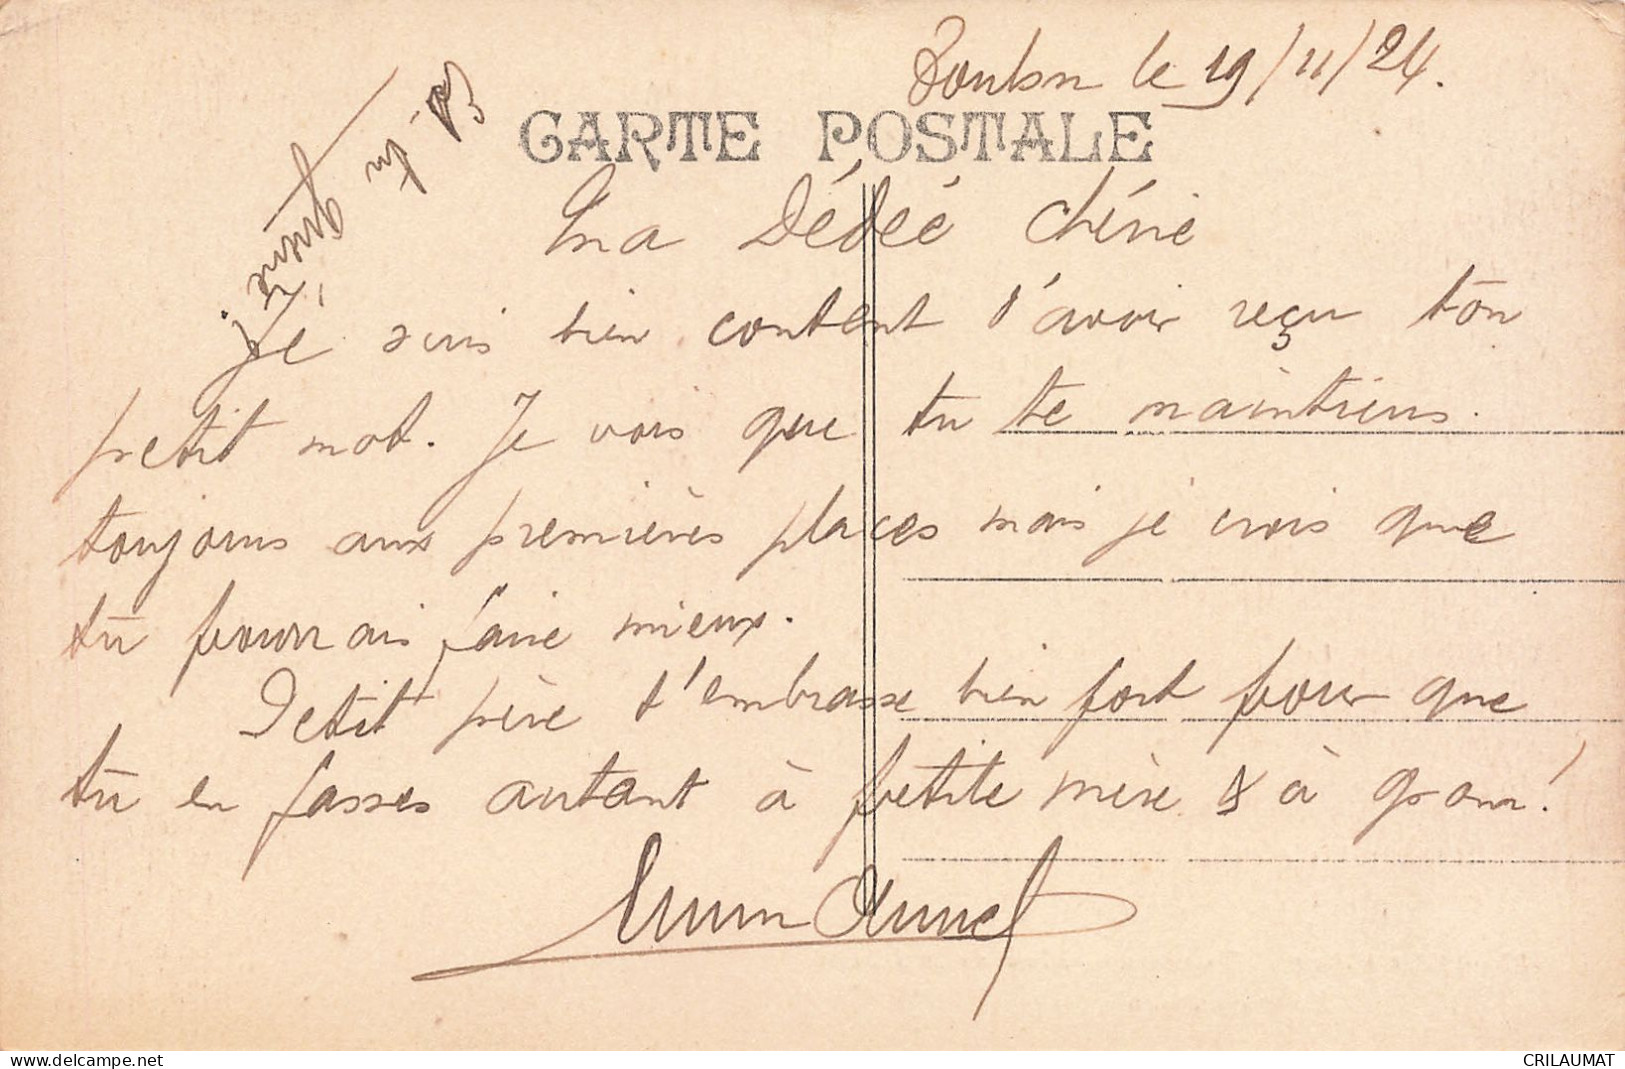 Toulon le 19/11/24.
CARTE POSTALE
Ma Dédée chérie
Je suis bien content d'avoir reçu ton
petit mot. Je vois que tu te maintiens
toujours aux premières places mais je crois que
tu pourrais faire mieux.
Petit père t'embrasse bien fort pour que
tu en fasses autant à petite mère & à
www.delcampe.net
CRILAUMAT